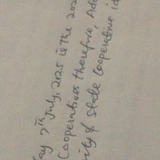 ay 7th July, 2025 is the 202
Cooperatives therefore, Ad
ity of State Cooperative id